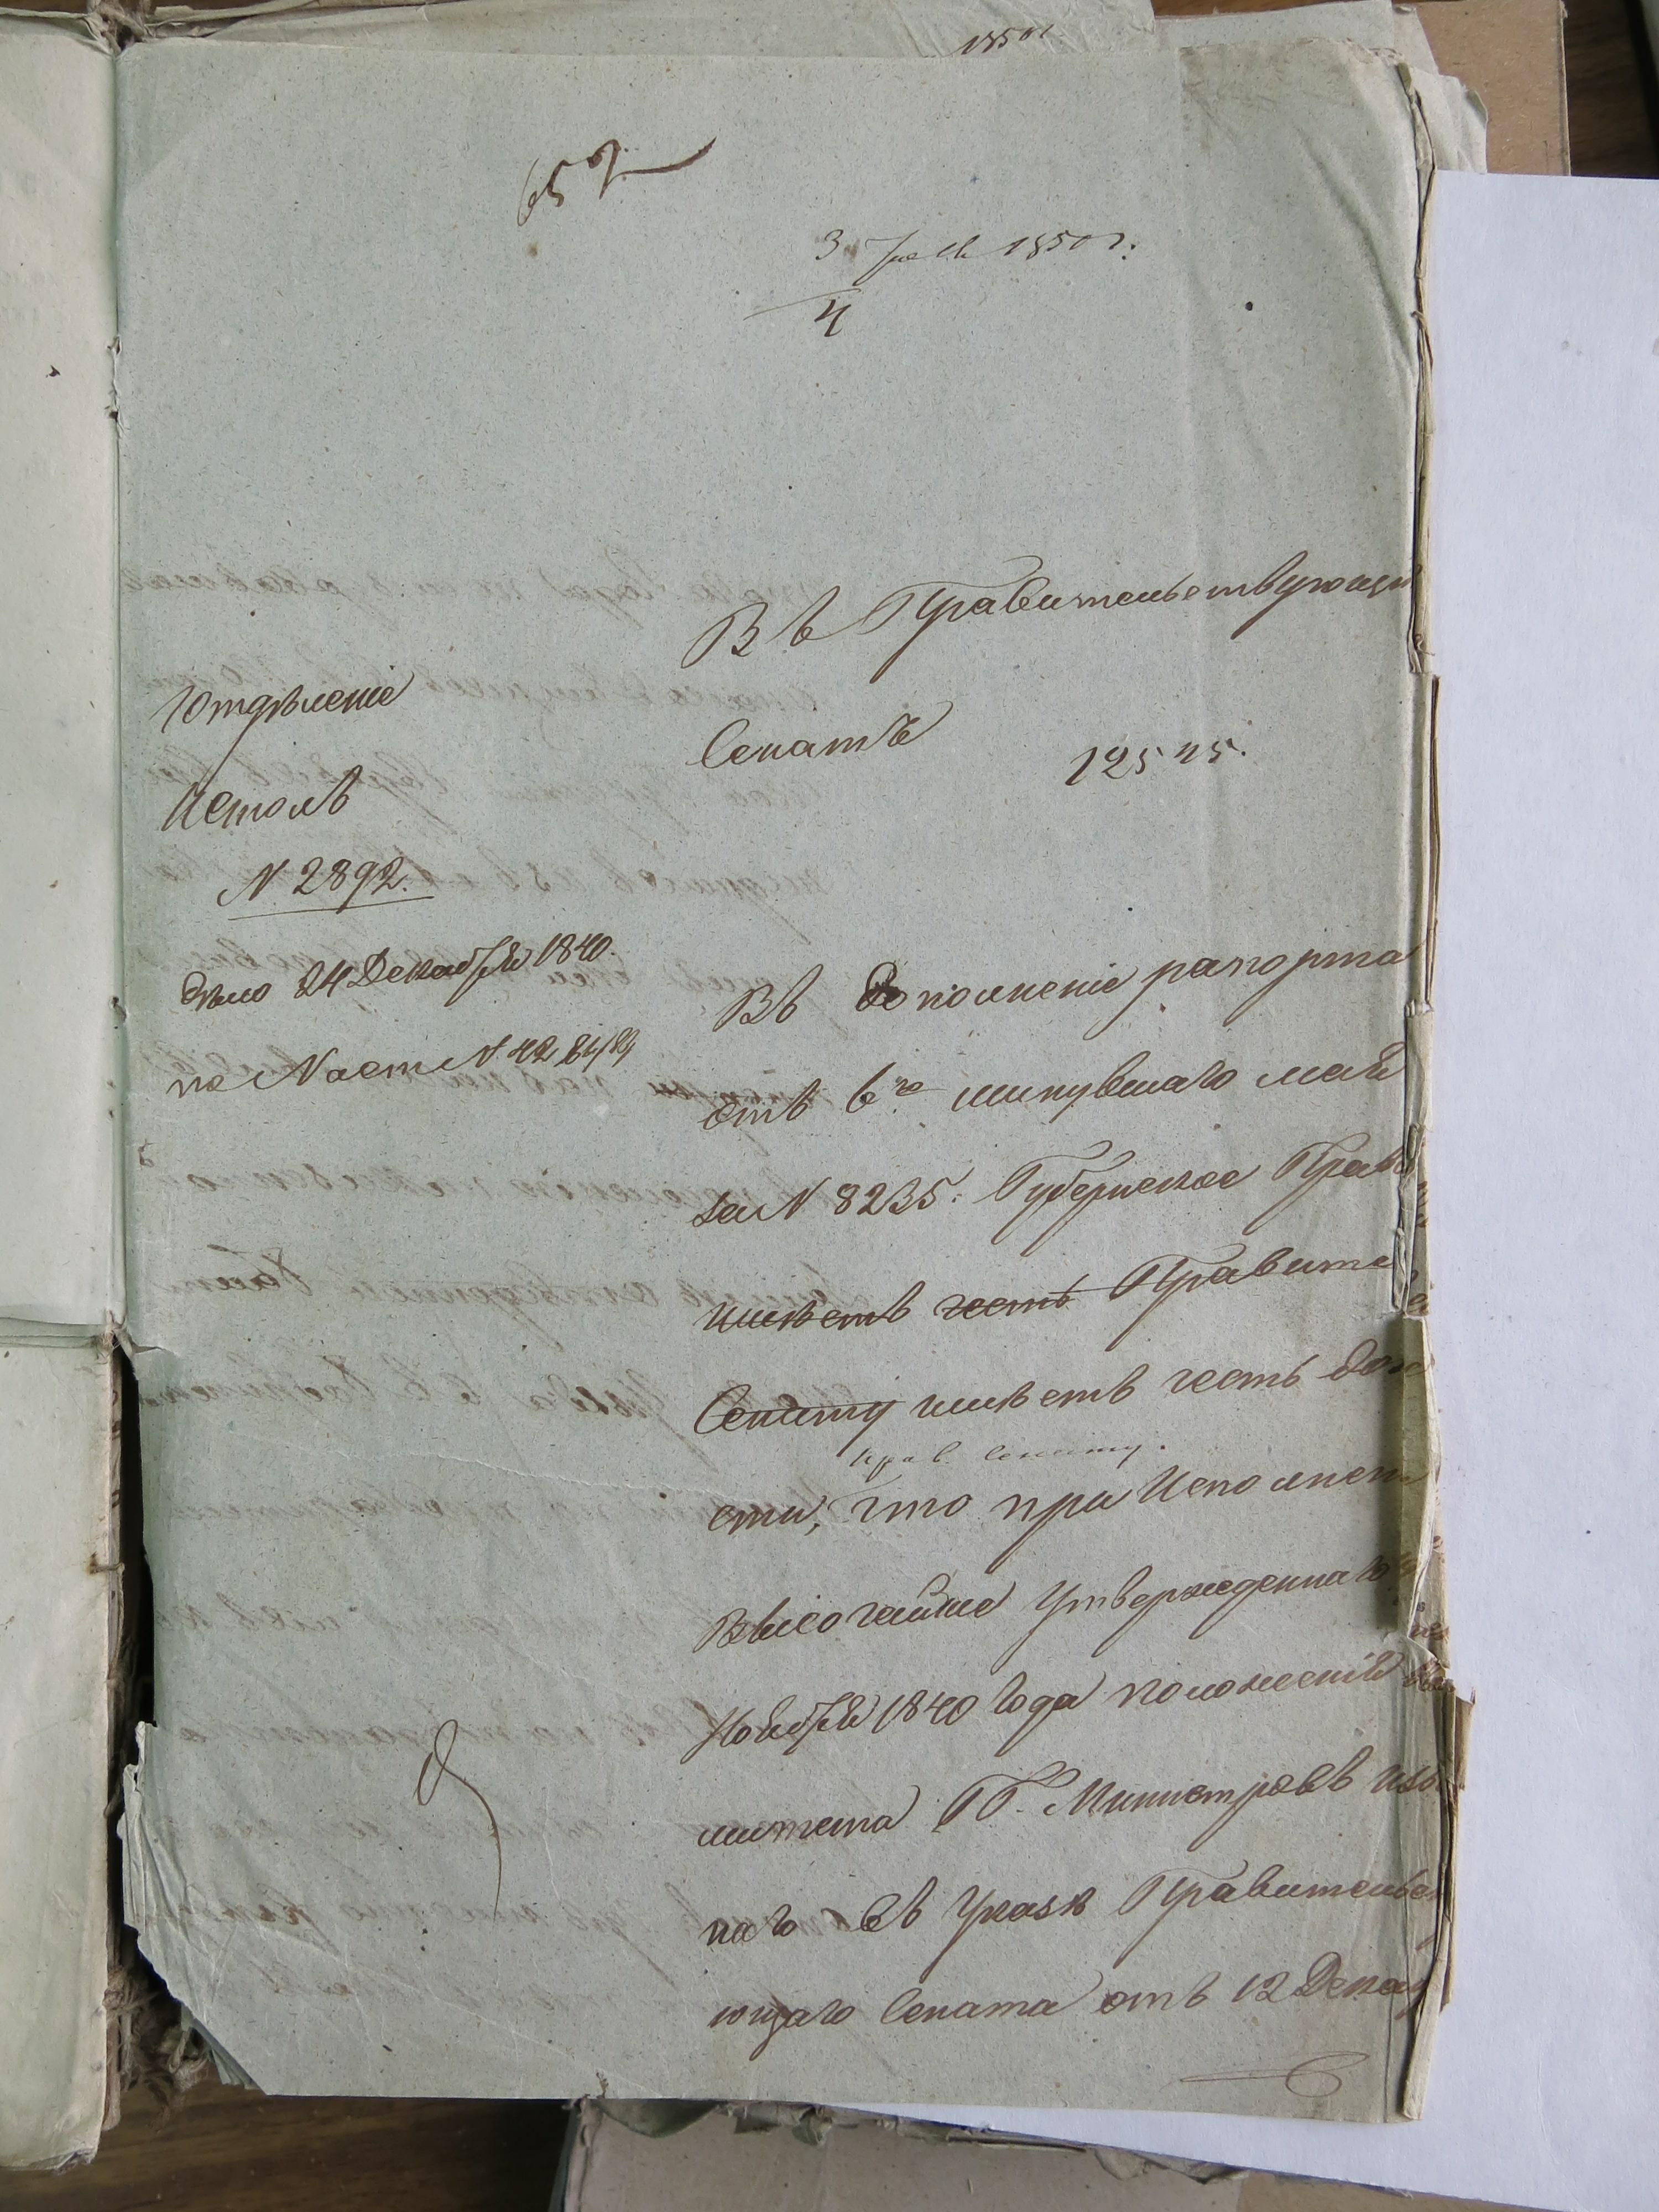 1850
652
3 Іюля 1850 г.
4
Въ Правительствующи
Сенатъ
12545.
1 Отдѣленіе
II Столъ
N 2892.
дѣло 24 Декабря 1840.
по N аст N 42
Въ дополненіе рапорта
отъ 6го минувшаго мая
за N 8235. Губернское Прав
имѣетъ честь Правите
Сенату имѣетъ честь доне
прав. сенату.
сти, что при исполнен
Высочайше утвержденнаго
Ноября 1840 года положенія
митета ГГ. Министровъ изъ
наго въ Указѣ Правительс
ющаго Сената отъ 12 Декаб